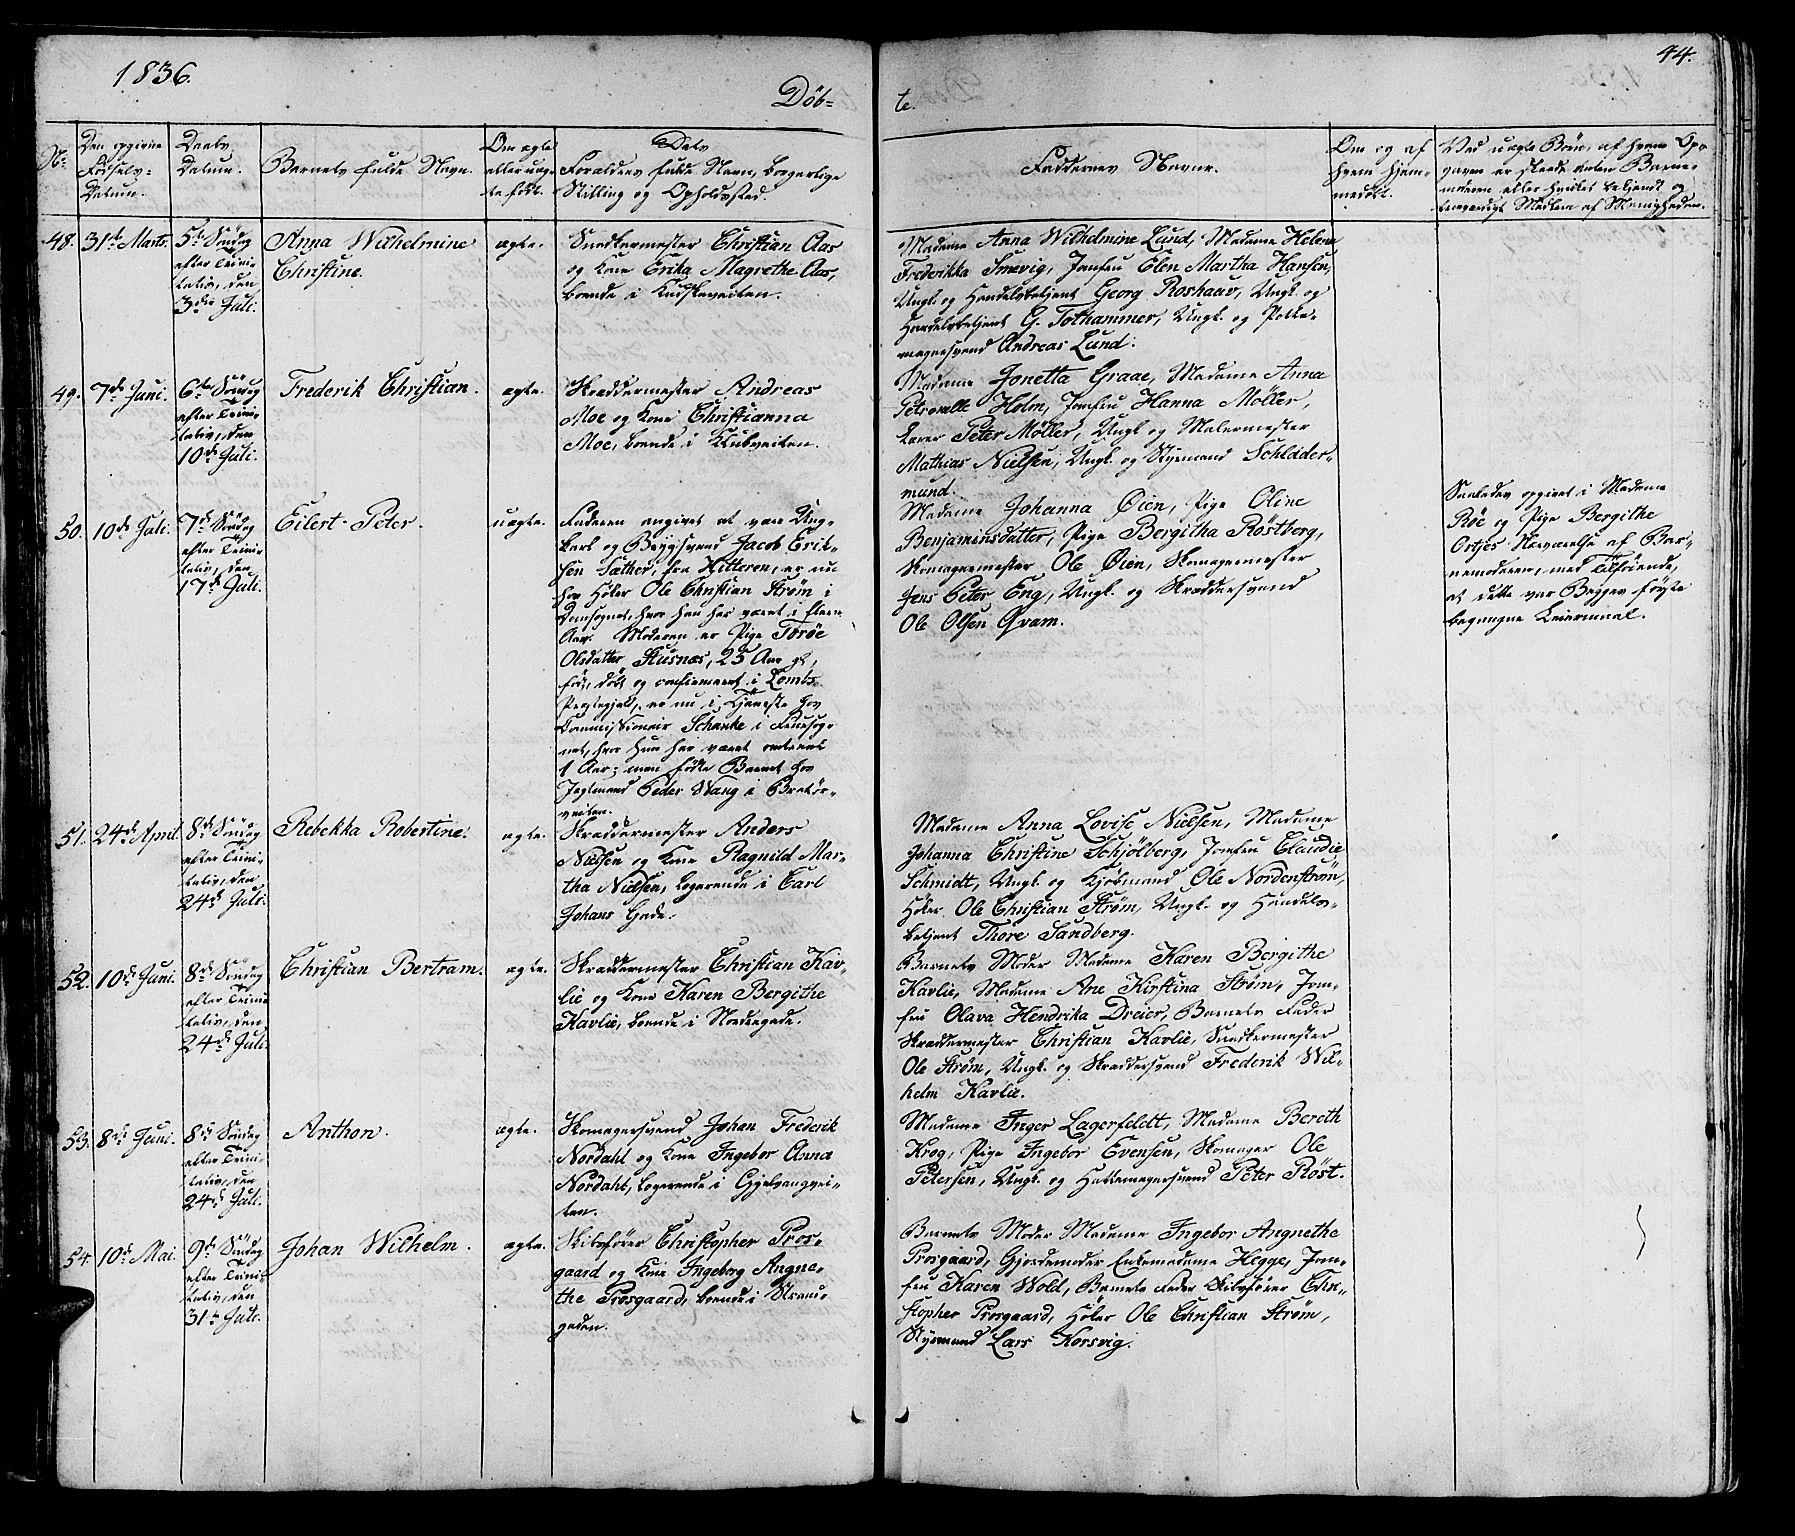 1836.
44.
Døb=
te.
No
Den opgivne
Fødsels-
Datum.
Daabs
Datum.
Barnets fulde Navn.
Om ægte
eller uæg-
te født.
Dets
Forældres fulde Navn, borgerlige
Stilling og Opholdssted.
Faddernes Navne.
Om og af
hvem hjem-
medøbt.
Ved uægte Børn, af hvem Op-
gaven er skeedt enten Barne-
moderen eller hvilket bekjendt og
troværdigt Medlem af Menigheden.
48.
31te Marts.
5te Søndag
efter Trini-
tatis, den
3die Juli.
Anna Wilhelmine
Christine.
ægte.
Snedkermester Christian Aas
og Kone Erika Magrethe Aas,
boende i Kudskeveiten.
Madame Anna Wilhelmine Lund, Madame Helena
Frederikka Smevig, Jomfru Elen Martha Hansen,
Ungk. og Handelsbetjent Georg Roshauv, Ungk. og
Handelsbetjent G. Tolhammer, Ungk. og Potte-
magersvend Andreas Lund.
49.
7de Juni.
6te Søndag
efter Trini-
tatis, den
10de Juli.
Frederik Christian.
ægte.
Skræddermester Andreas
Moe og Kone Christianna
Moe, boende i Klubveiten.
Madame Jonetta Graae, Madame Anna
Petronelle Holm, Jomfru Hanna Møller,
Lærer Peter Møller, Ungk. og Malermester
Mathias Nielsen, Ungk. og Styrmand Schlader-
mund.
50.
10de Juli.
7de Søndag
efter Trini-
tatis, den
17de Juli.
Eilert Peter.
uægte.
Faderen angivet at være Ung-
karl og Brygsvend Jacob Erik-
sen Sæther, fra Hitteren, er nu
hos Høker Ole Christian Strøm i
Domsognet, hvor han har været i flere
Aar. Moderen er Pige Torøe
Olsdatter Stusnæs, 25 Aar gl.,
født, døbt og confirmeret i Lombs
Præstegjeld, er nu i Tjeneste hos
Commissionair Schanke i Fruesog-
net, hvor hun har været omtrent
1 Aar; men fødte Barnet hos
Jagtmand Peder Wang i Bratør-
veiten.
Madame Johanna Øien, Pige Oline
Benjaminsdatter, Pige Bergitha Röstberg,
Skomagermester Ole Øien, Skomagermester
Jens Peter Eng, Ungk. og Skræddersvend
Ole Olsen Qvam.
Saaledes opgivet i Madame
Røe og Pige Bergithe
Ortjes Nærværelse af Bar-
nemoderen, med Tilføiende,
at dette var Begges første
begangne Leiermaal.
51.
24de April.
8de Søndag
efter Trini-
tatis, den
24de Juli.
Rebekka Robertine.
ægte.
Skræddermester Anders
Nielsen og Kone Ragnild Mar-
tha Nielsen, logerende i Carl
Johans Gade.
Madame Anna Lovise Nielsen, Madame
Johanna Christine Schjölberg, Jomfru Claudie
Schmidt, Ungk. og Kjøbmand Ole Nordenstrøm,
Høker Ole Christian Strøm, Ungk. og Handels-
betjent Thore Sandberg.
52.
10de Juni.
8de Søndag
efter Trini-
tatis, den
24de Juli.
Christian Bertram.
ægte.
Skræddermester Christian Kav-
lie og Kone Karen Bergithe
Kavlie, boende i Nordregade.
Barnets Moder Madame Karen Bergithe
Kavlie, Madame Ane Kirstina Strøm, Jom-
fru Olava Hendrika Dreier, Barnets Fader
Skræddermester Christian Kavlie, Snedkermester
Ole Strøm, Ungk. og Skræddersvend Frederik Wil-
helm Kavlie.
53.
8de Juni.
8de Søndag
efter Trini-
tatis, den
24de Juli.
Anthon.
ægte.
Skomagersvend Johan Frederik
Nordahl og Kone Ingebor Anna
Nordahl, logerende i Gjelvangvei-
ten.
Madame Inger Lagerfeldt, Madame Bereth
Krog, Pige Ingebor Evensen, Skomager Ole
Petersen, Ungk. og Hattemagersvend Peter Röst.
54.
10de Mai.
9de Søndag
efter Trini-
tatis, den
31te Juli.
Johan Wilhelm.
ægte.
Skibsfører Christopher Pros-
gaard og Kone Ingeborg Angne-
the Prosgaard, boende i Strand-
gaden.
Barnets Moder Madame Ingebor Angnethe
Prosgaard, Gjordemoder Enkemadame Hegge, Jom-
fru Karen Wold, Barnets Fader Skibsfører Chri-
stopher Prosgaard, Høker Ole Christian Strøm,
Styrmand Lars Korsvig.